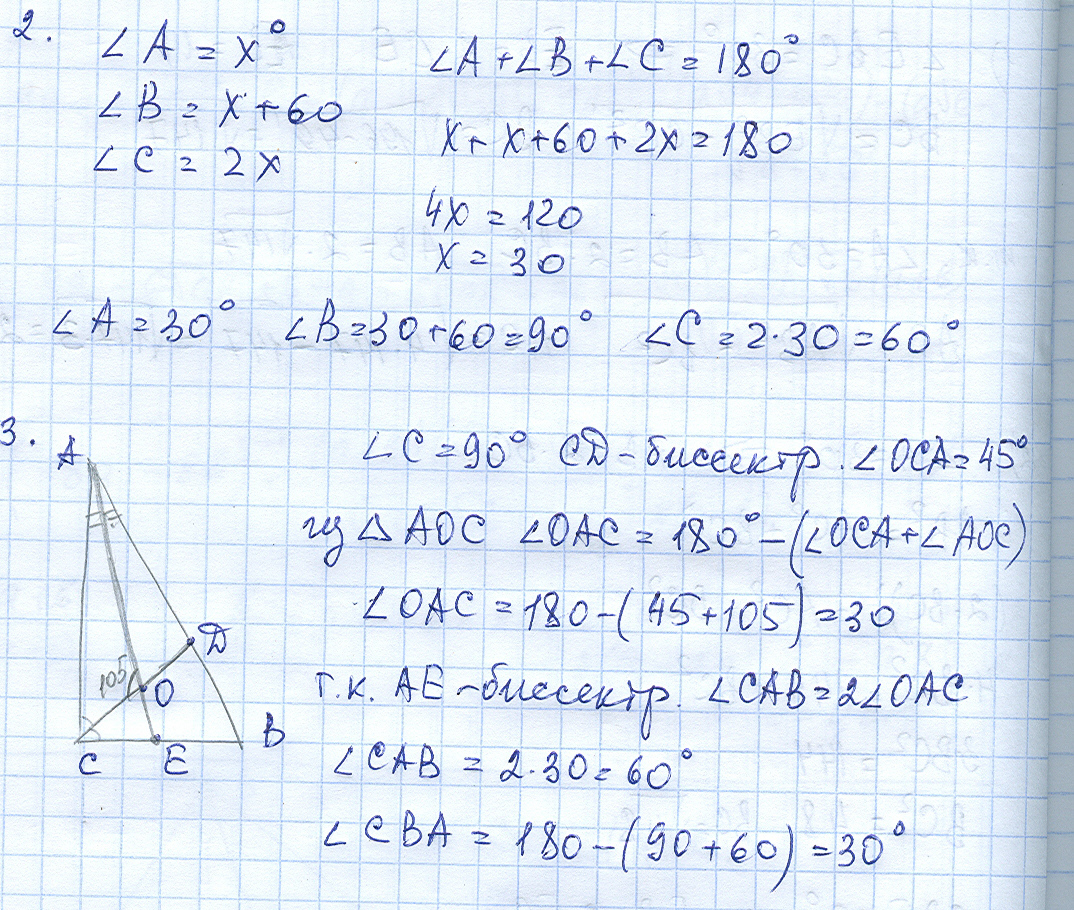 2.
∠A = x°
∠A + ∠B + ∠C = 180°
∠B = x + 60
x + x + 60 + 2x = 180
∠C = 2x
4x = 120
x = 30
∠A = 30° ∠B = 30 + 60 = 90° ∠C = 2·30 = 60°
3.
A
∠C = 90° CD – биссектр. ∠OCA = 45°
из △AOC ∠OAC = 180° – (∠OCA + ∠AOC)
∠OAC = 180 – (45 + 105) = 30
D
105
O
т.к. AE – биссектр. ∠CAB = 2∠OAC
C E B
∠CAB = 2·30 = 60°
∠CBA = 180 – (90 + 60) = 30°